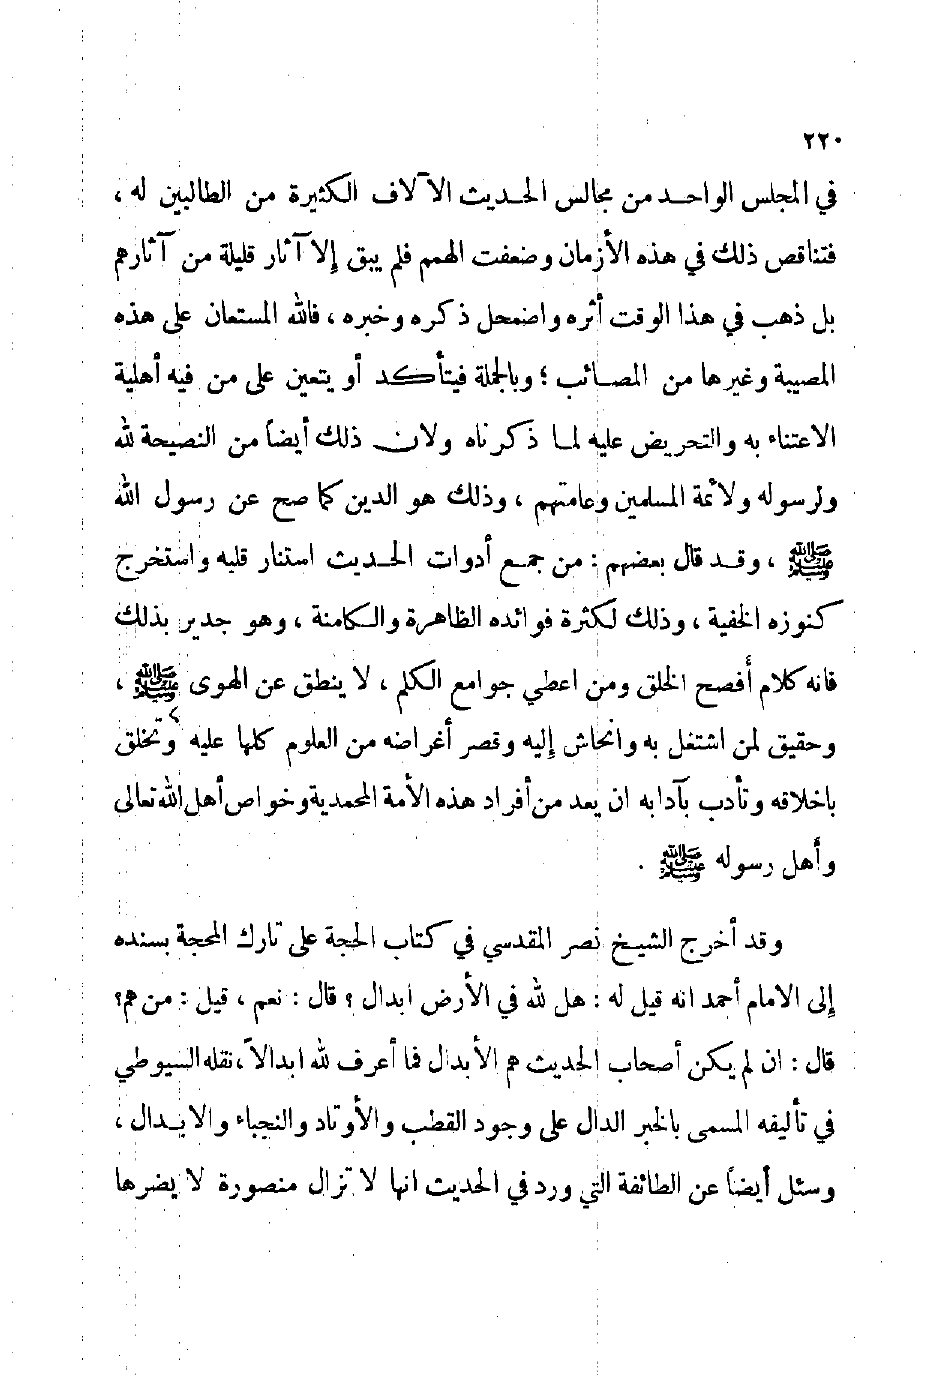 ٢٢٠
في المجلس الواحد من مجالس الحديث الآلاف الكثيرة من الطالبين له ،
فتناقص ذلك في هذه الأزمان وضعفت الهمم فلم يبق إلا آثار قليلة من آثارهم
بل ذهب في هذا الوقت أثره واضمحل ذكره وخبره ، فالله المستعان على هذه
المصيبة وغيرها من المصائب ؛ وبالجملة فيتأكد أو يتعين على من فيه أهلية
الاعتناء به والتحريض عليه لما ذكرناه ولان ذلك أيضاً من النصيحة لله
ولرسوله ولأئمة المسلمين وعامتهم ، وذلك هو الدين كما صح عن رسول الله
ﷺ ، وقد قال بعضهم : من جمع أدوات الحديث استنار قلبه واستخرج
كنوزه الخفية ، وذلك لكثرة فوائده الظاهرة والكامنة ، وهو جدير بذلك
فانه كلام أفصح الخلق ومن اعطي جوامع الكلم ، لا ينطق عن الهوى ﷺ ،
وحقيق لمن اشتغل به وانحاش إليه وقصر أغراضه من العلوم كلها عليه وتخلق
باخلاقه وتأدب بآدابه ان يعد من أفراد هذه الأمة المحمدية وخواص أهل الله تعالى
وأهل رسوله ﷺ .
وقد أخرج الشيخ نصر المقدسي في كتاب الحجة على تارك المحجة بسنده
إلى الامام أحمد انه قيل له : هل لله في الأرض ابدال ؟ قال : نعم ، قيل : من هم؟
قال : ان لم يكن أصحاب الحديث هم الأبدال فما أعرف لله ابدالاً ، نقله السيوطي
في تأليفه المسمى بالخبر الدال على وجود القطب والأوتاد والنجباء والابدال ،
وسئل أيضاً عن الطائفة التي ورد في الحديث انها لا تزال منصورة لا يضرها